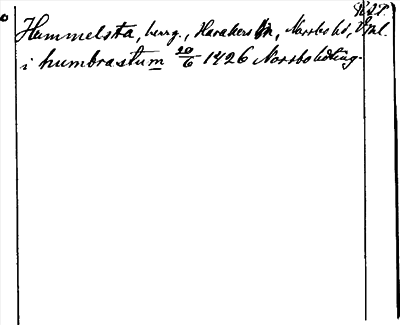 R.A.P.
Hummelsta, herrg., Harakers sn, Norrbo hd, Vml.
i humbrastum 20/6 1426 Norrbohdting.